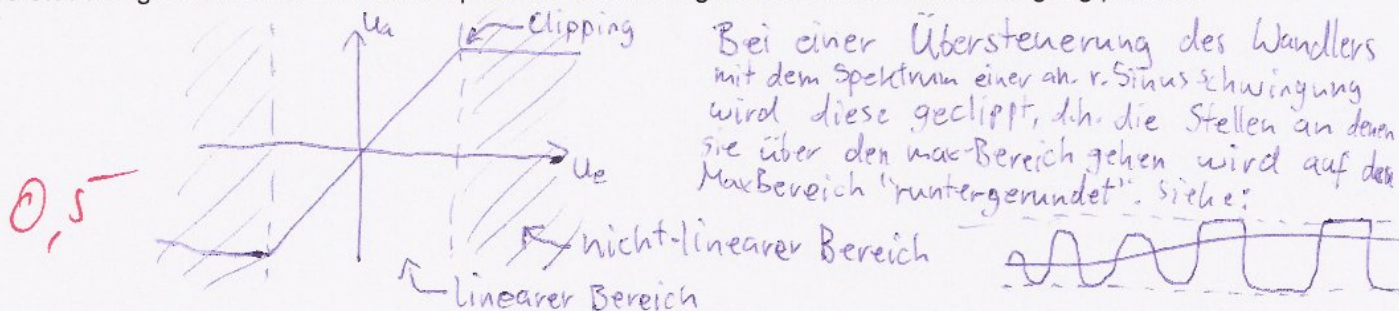 Ua
Clipping
Ue
nicht-linearer Bereich
linearer Bereich
0,5
Bei einer Übersteuerung des Wandlers
mit dem Spektrum einer an. r. Sinusschwingung
wird diese geclippt, d.h. die Stellen an denen
sie über den max-Bereich gehen wird auf den
MaxBereich "runtergerundet". Siehe: